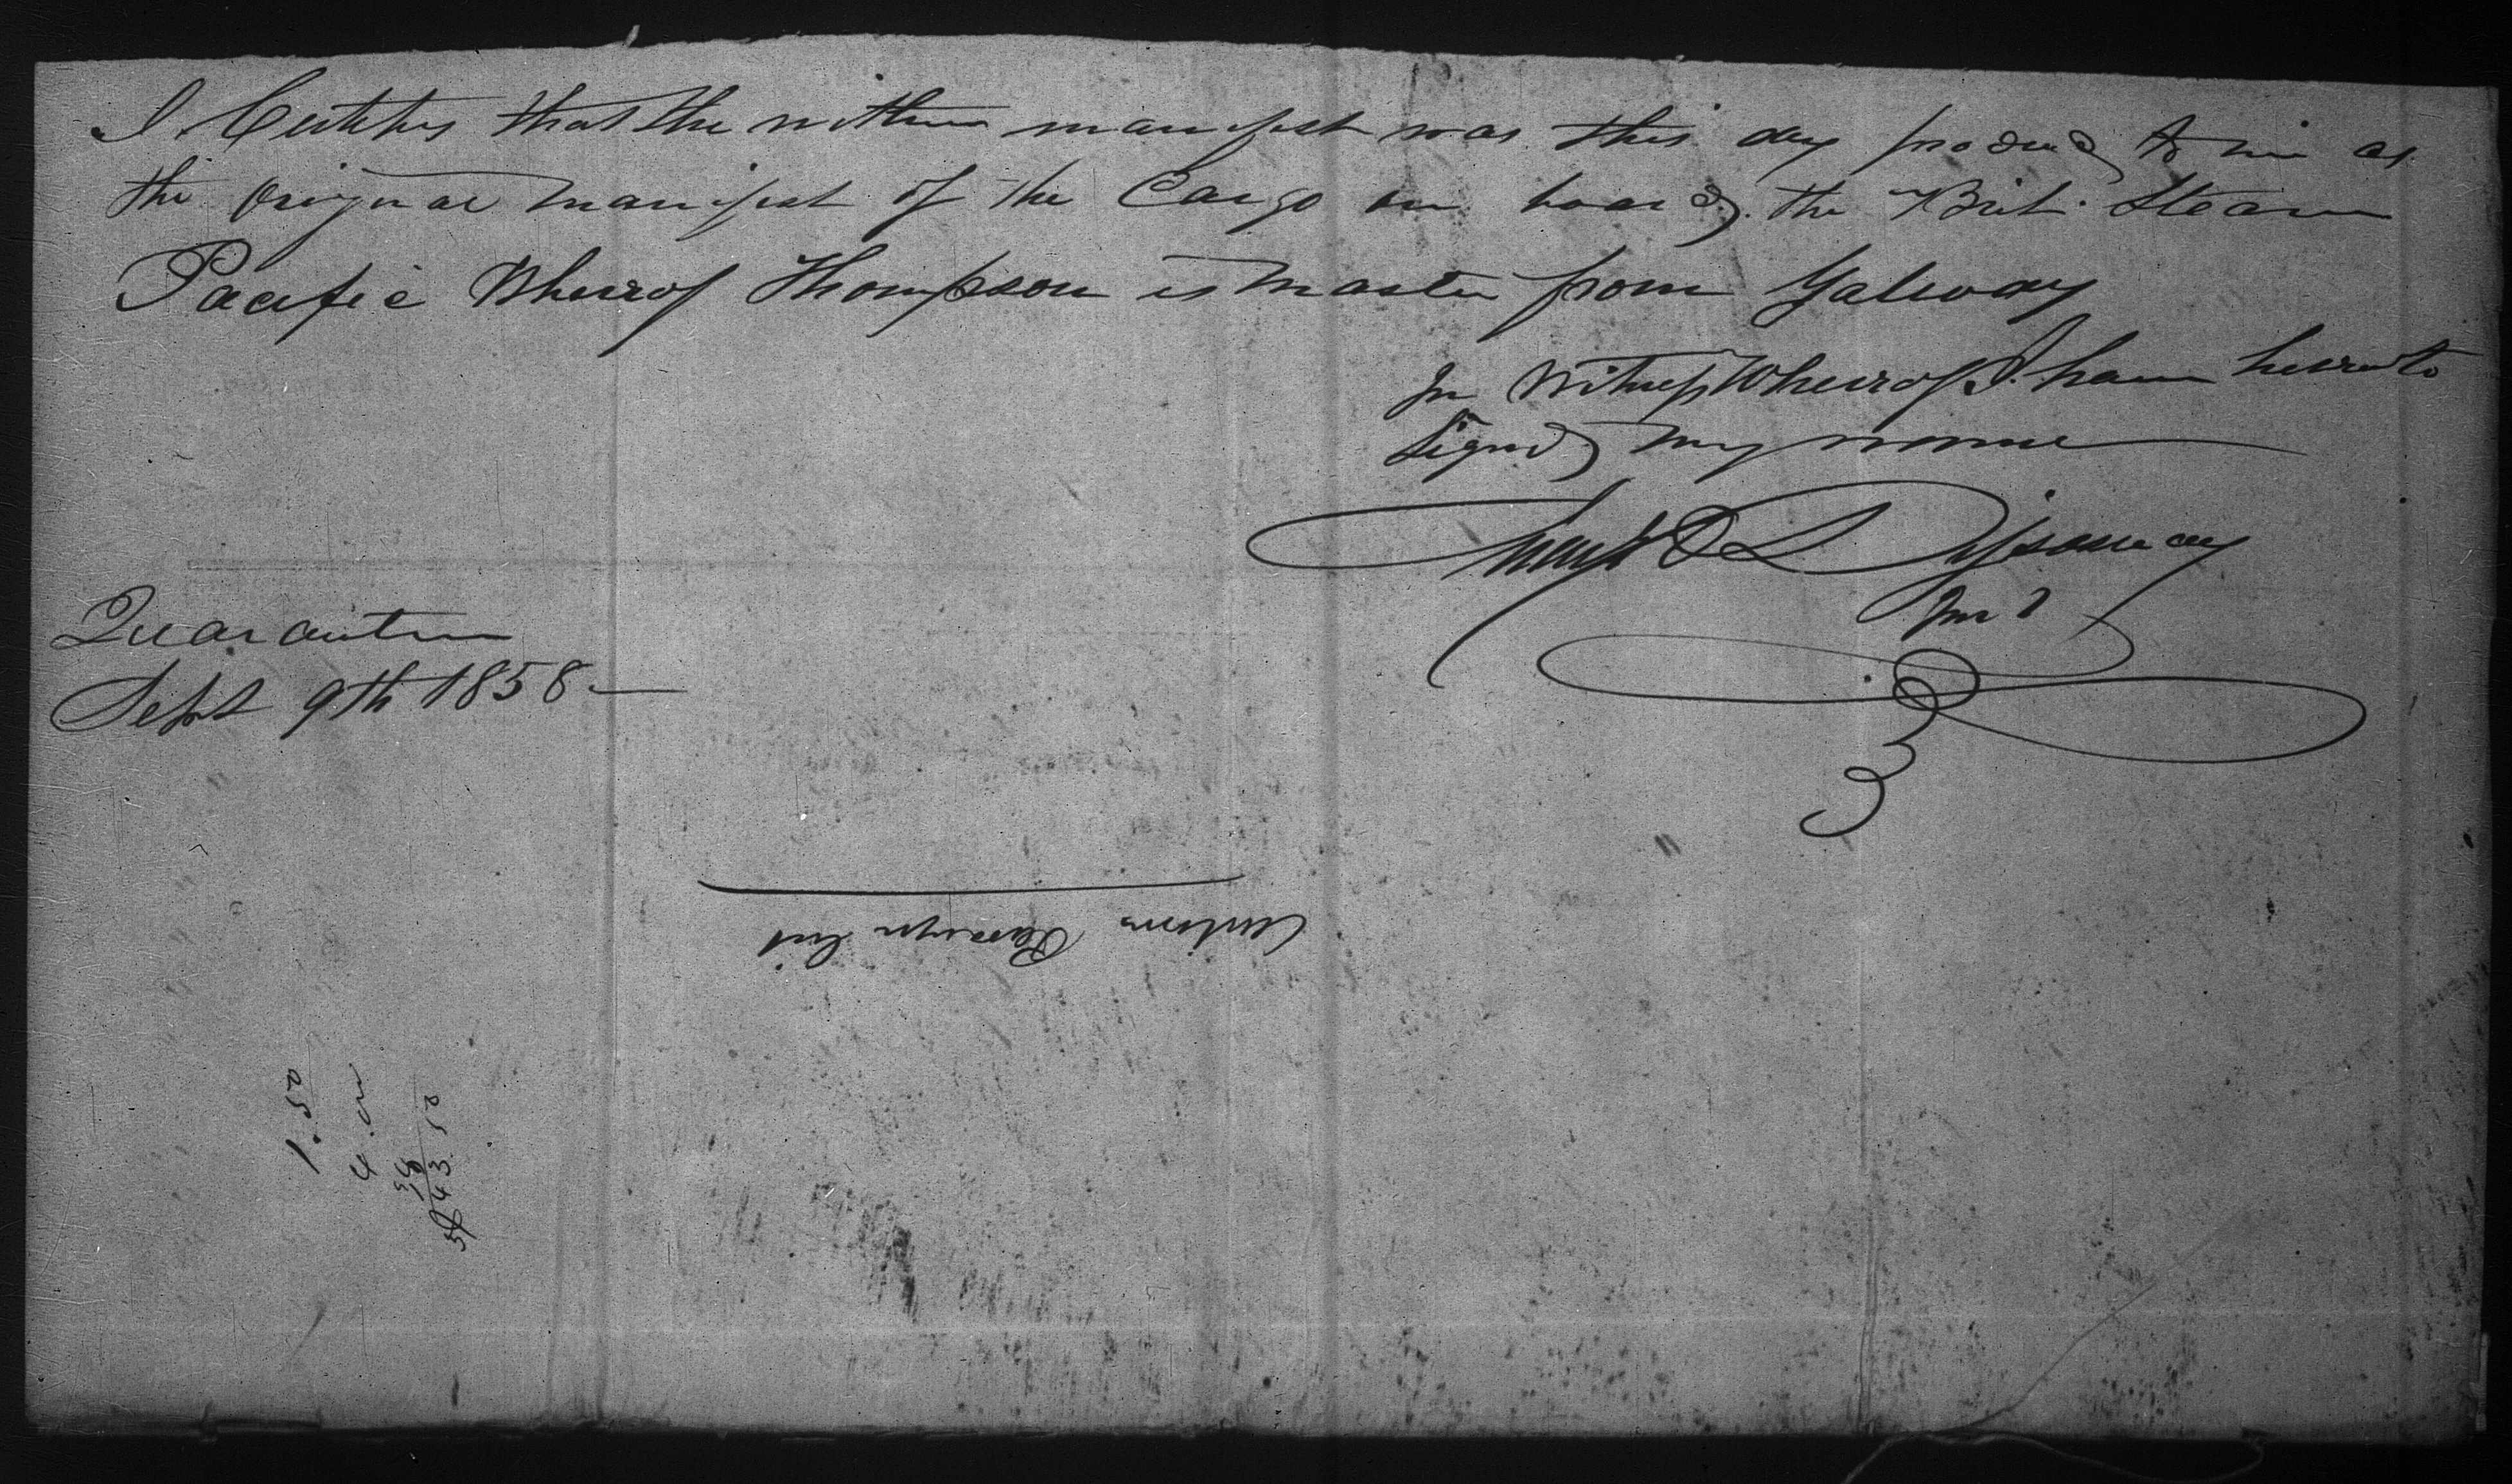 I Certify that the within manifest was this day produced to me as
the Original manifest of the Cargo on board the Brit. Steam
Pacific Wherof Thompson is master from Galway
In Witness Wherof I have herunto
Signed my name
D L
Quarantine
Sept 9th 1858
Customs Passenger List
1.50
4.00
38
43.50